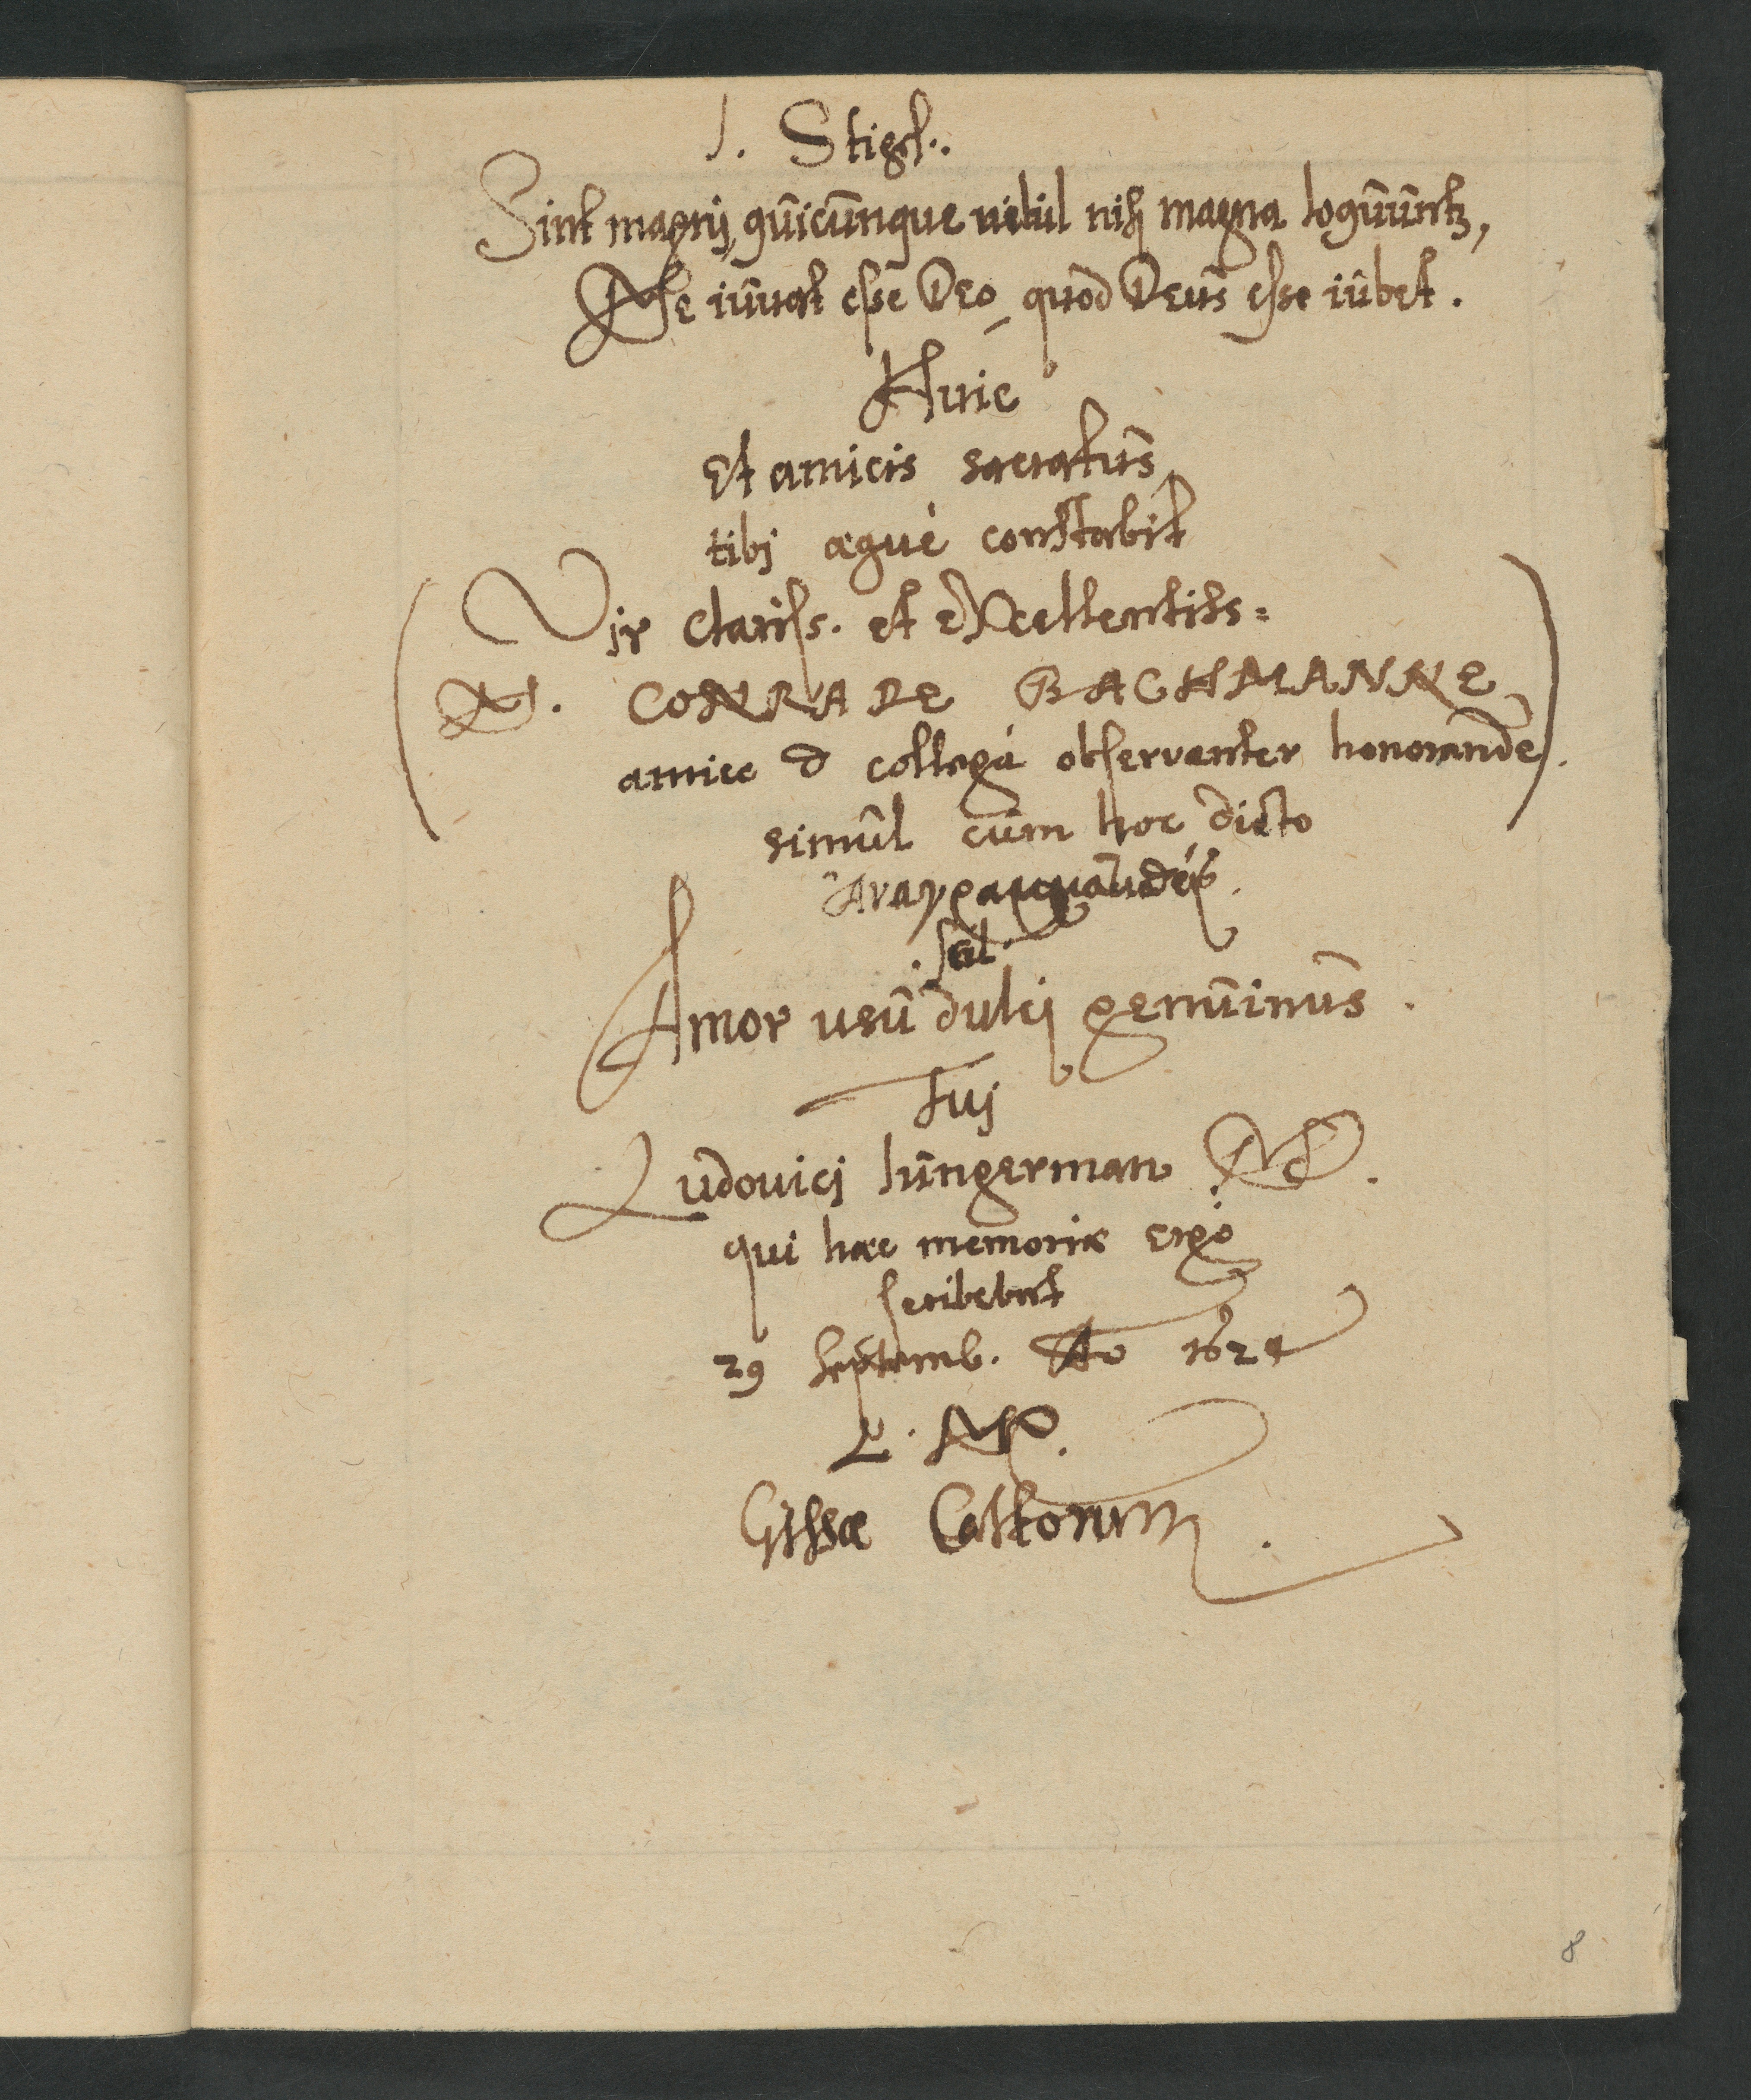 J. Stigel.
Sint magnj, quicunque nihil nisj magna loquuntur,
Me iuvat esse Deo, quod Deus esse iubet.
Huic
Et amicis sacratus
tibj aequè constabit
(Vir clariss. et excellentiss:
M. CONRADE BACHMANNE
amice & collega observanter honorande).
simul cum hoc dicto
scil.
Amor usu dulcj genuinus.
Tuj
Ludovicj Jungerman MD.
qui haec memoriae ergò
scribebat
29 Septemb. Ao 1624
Gissae Cattorum.
8